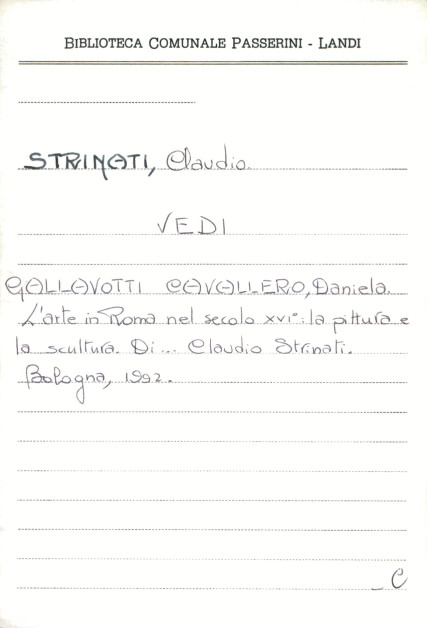 BIBLIOTECA COMUNALE PASSERINI - LANDI
STRINATI, Claudio.
VEDI
GALLAVOTTI CAVALLERO, Daniela.
L'arte in Roma nel secolo XVI°: la pittura e
la scultura. Di... Claudio Strinati.
Bologna, 1992.
_C